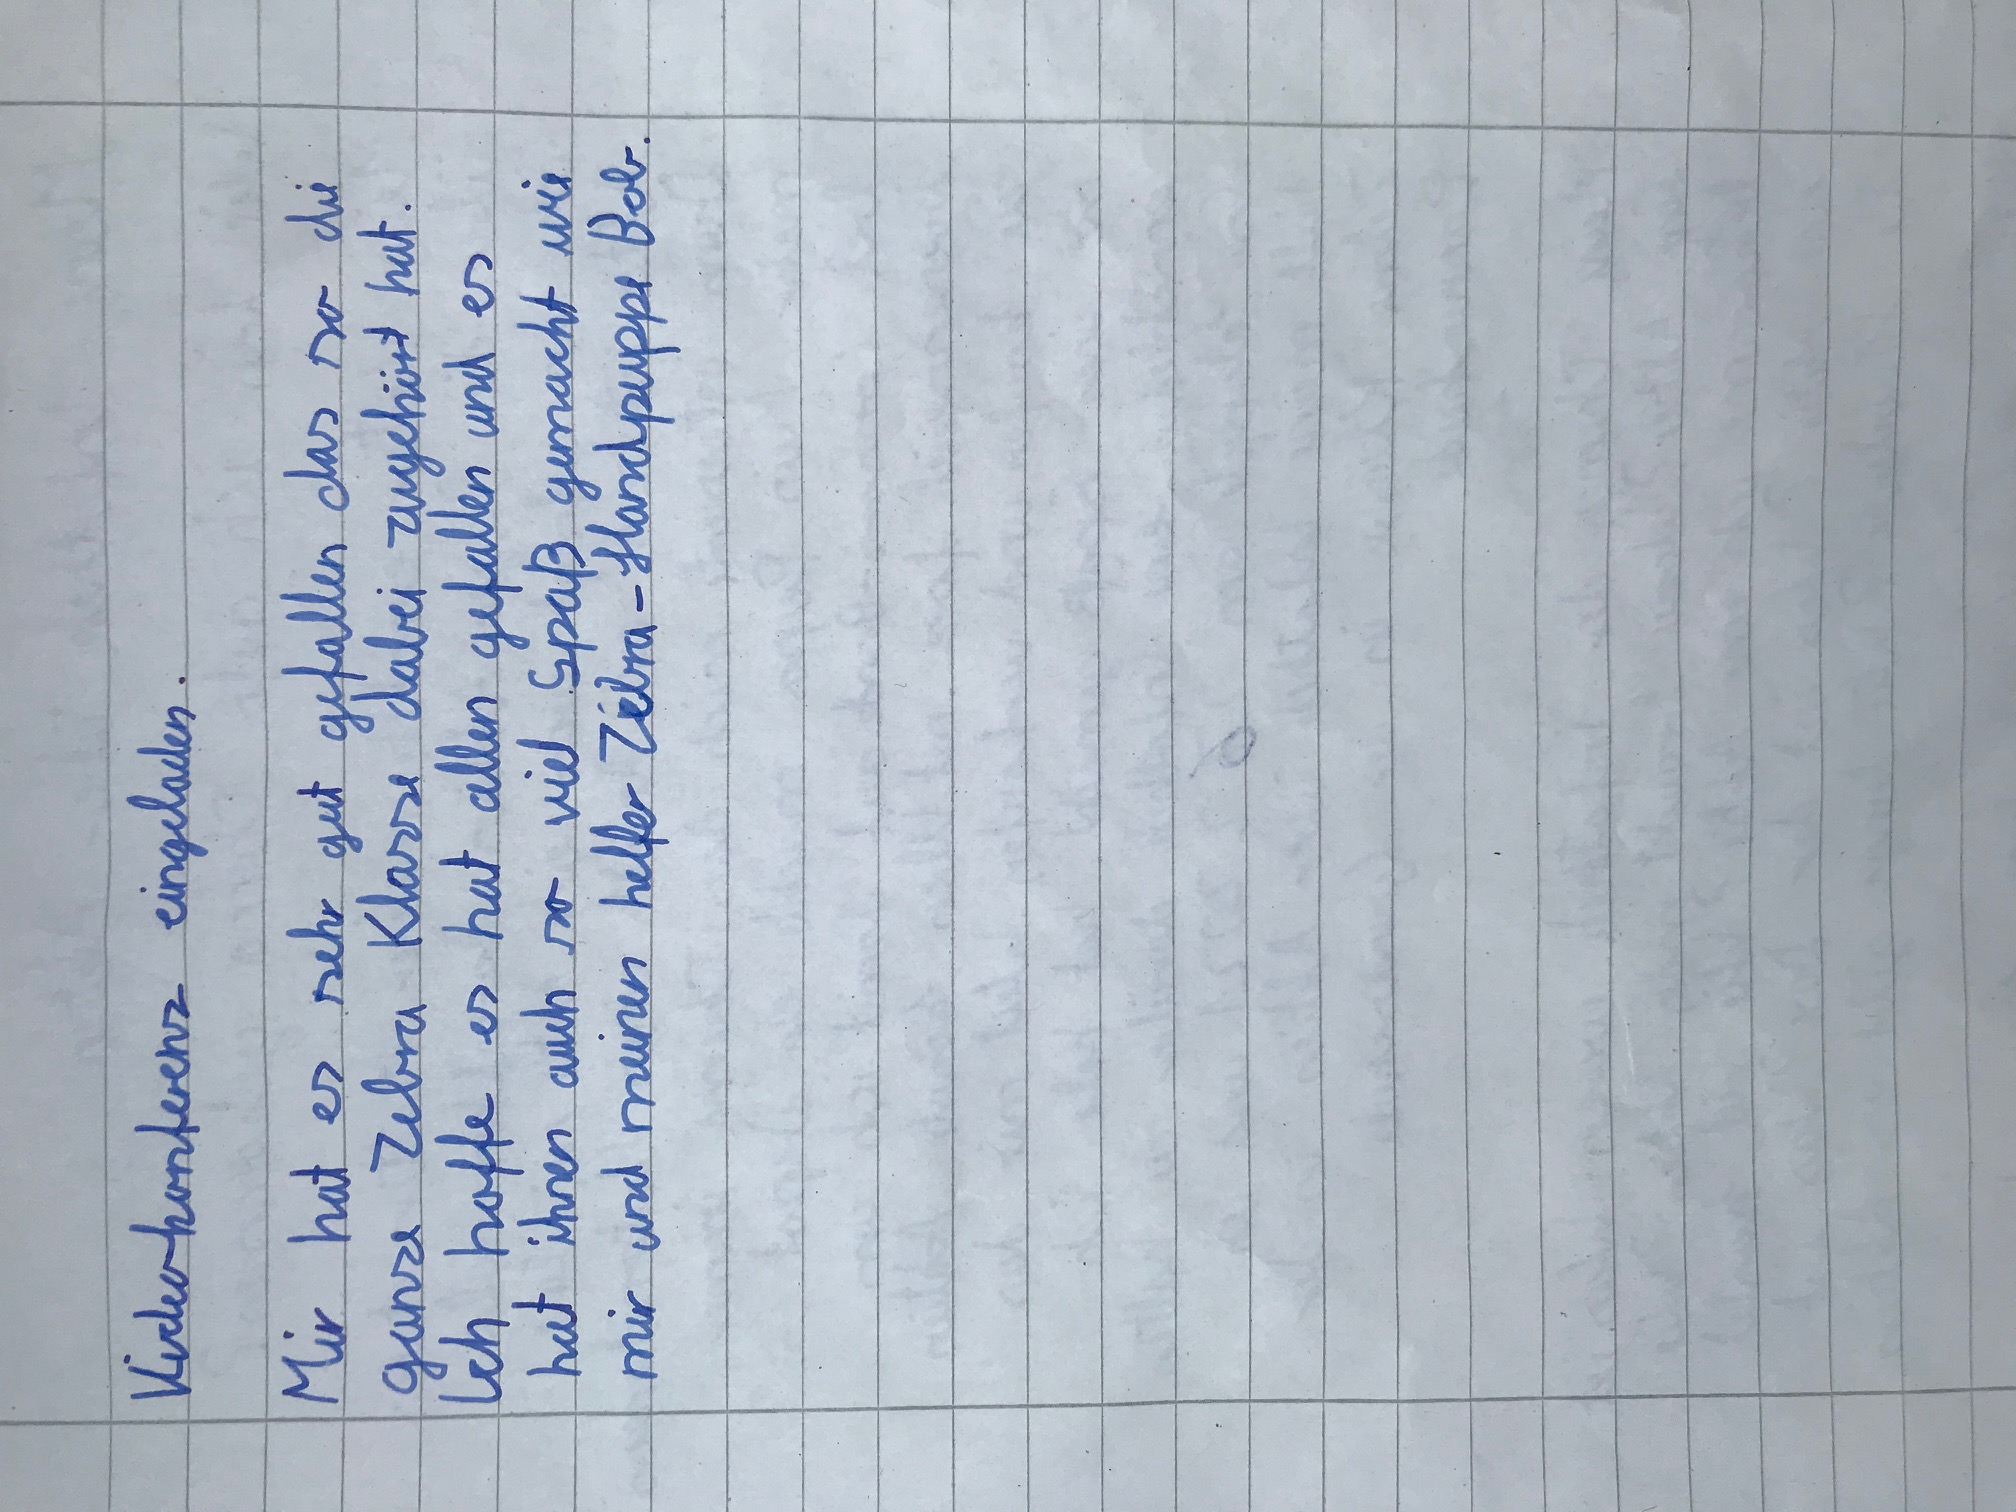 Kinder-konferenz eingeladen.
Mir hat es sehr gut gefallen das so die
ganze Zebra Klasse dabei zugehört hat.
Ich hoffe es hat allen gefallen und es
hat ihnen auch so viel Spaß gemacht wie
mir und meinen helfer Zebra-Handpuppe Bob.